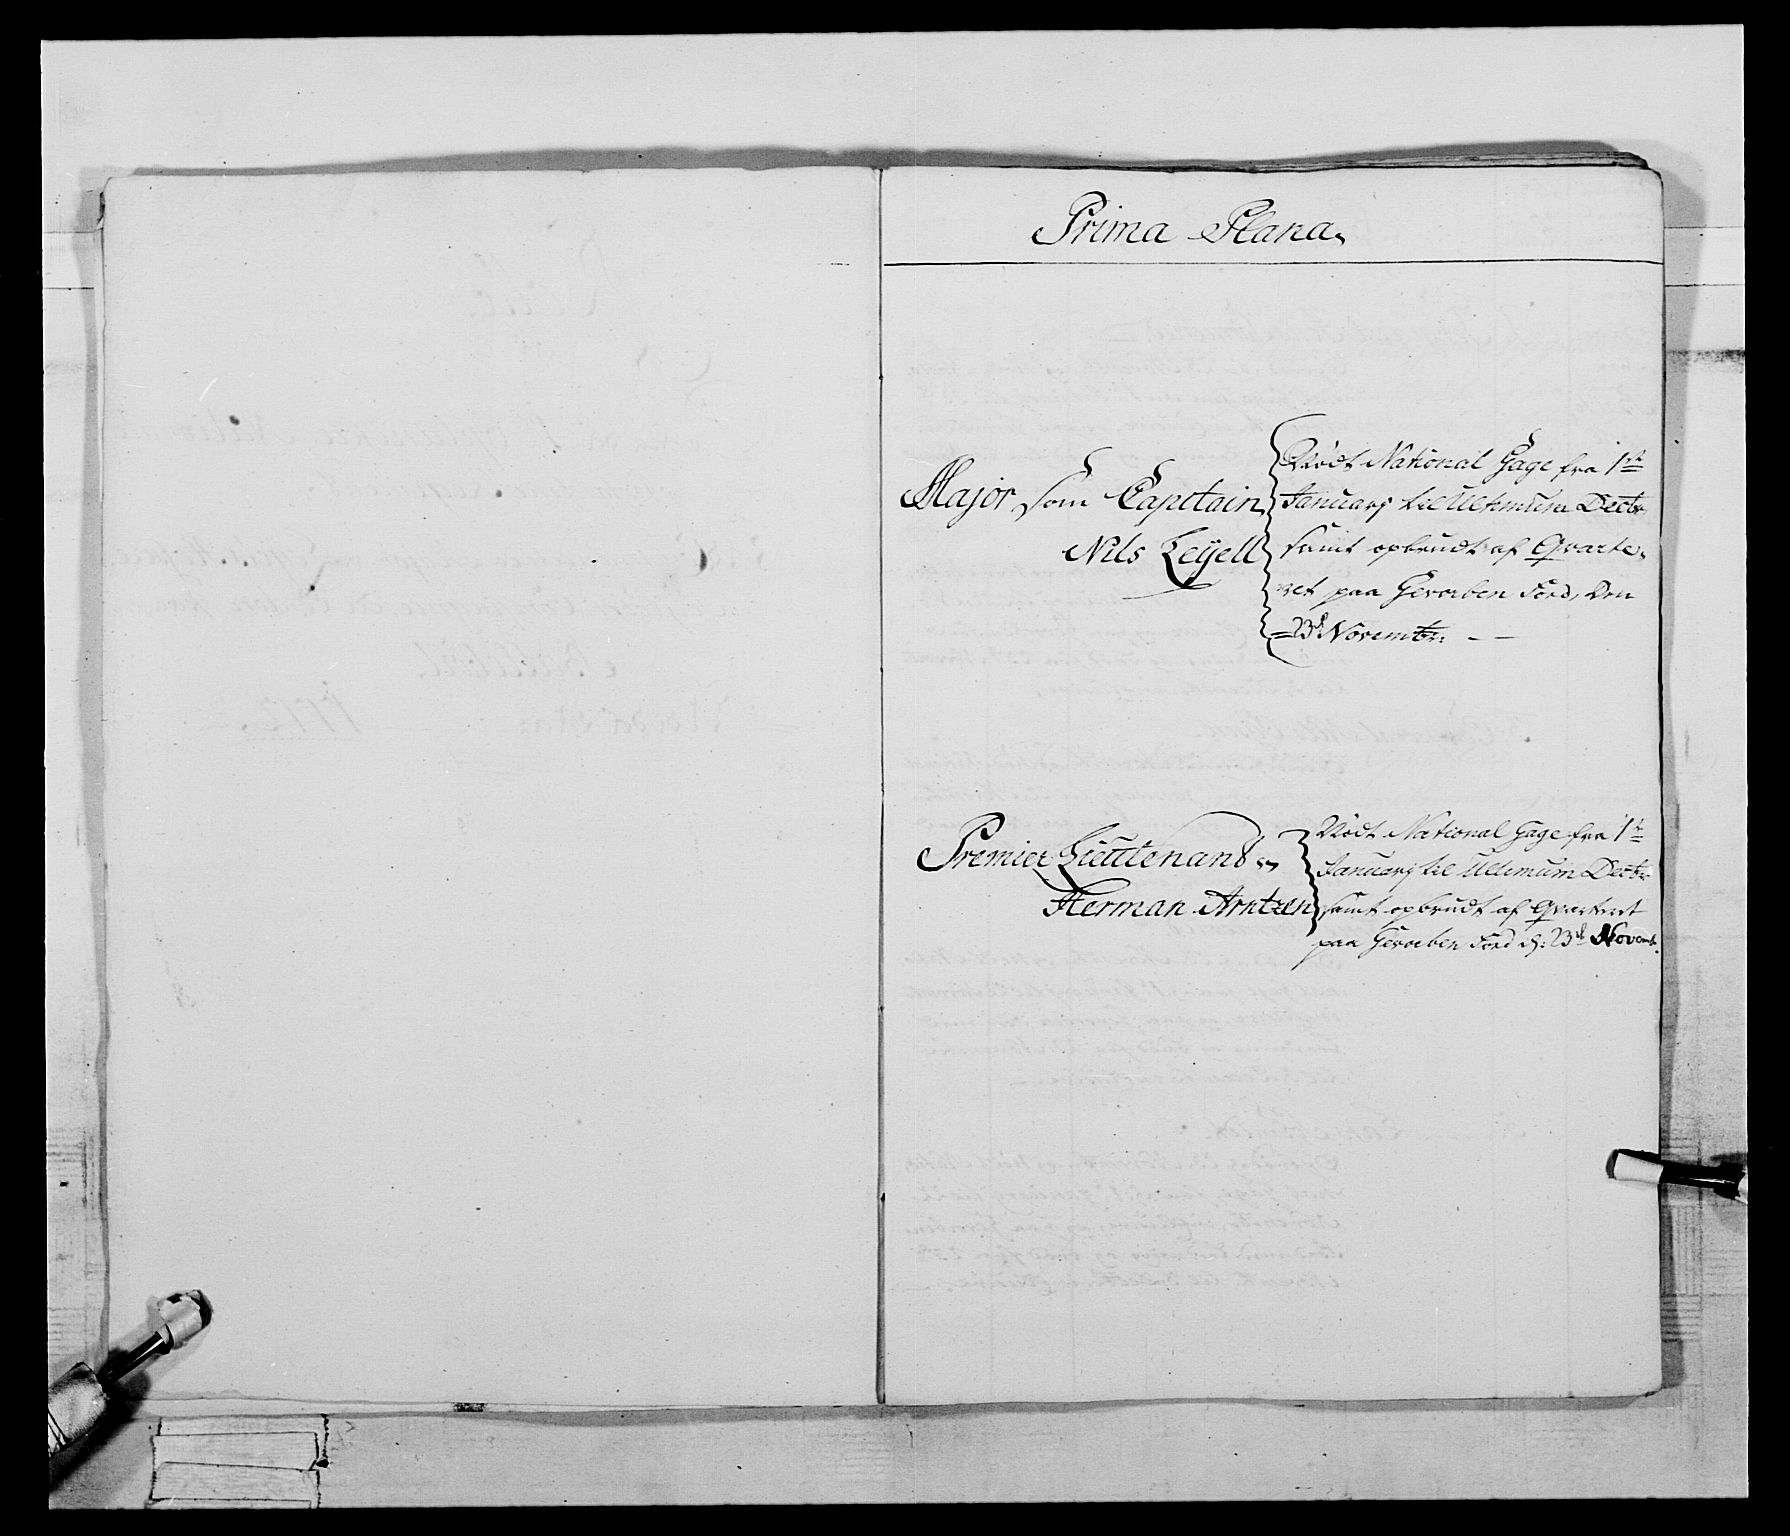 Prima Plana
Major som Capitain
Nils Leÿell
Nødt National Gage fra 1ste
Januarj til Ultimum Decbr
samt opbrudt af Qvarte-
ret paa Gevorben Fod, den
23de Novembr:
Premier Lieutenant
Herman Arntzen
Nødt National Gage fra 1ste
Januarj til Ultimum Decbr
samt opbrudt af Qvarteret
paa Gevorben Fod d: 23de Novembr.